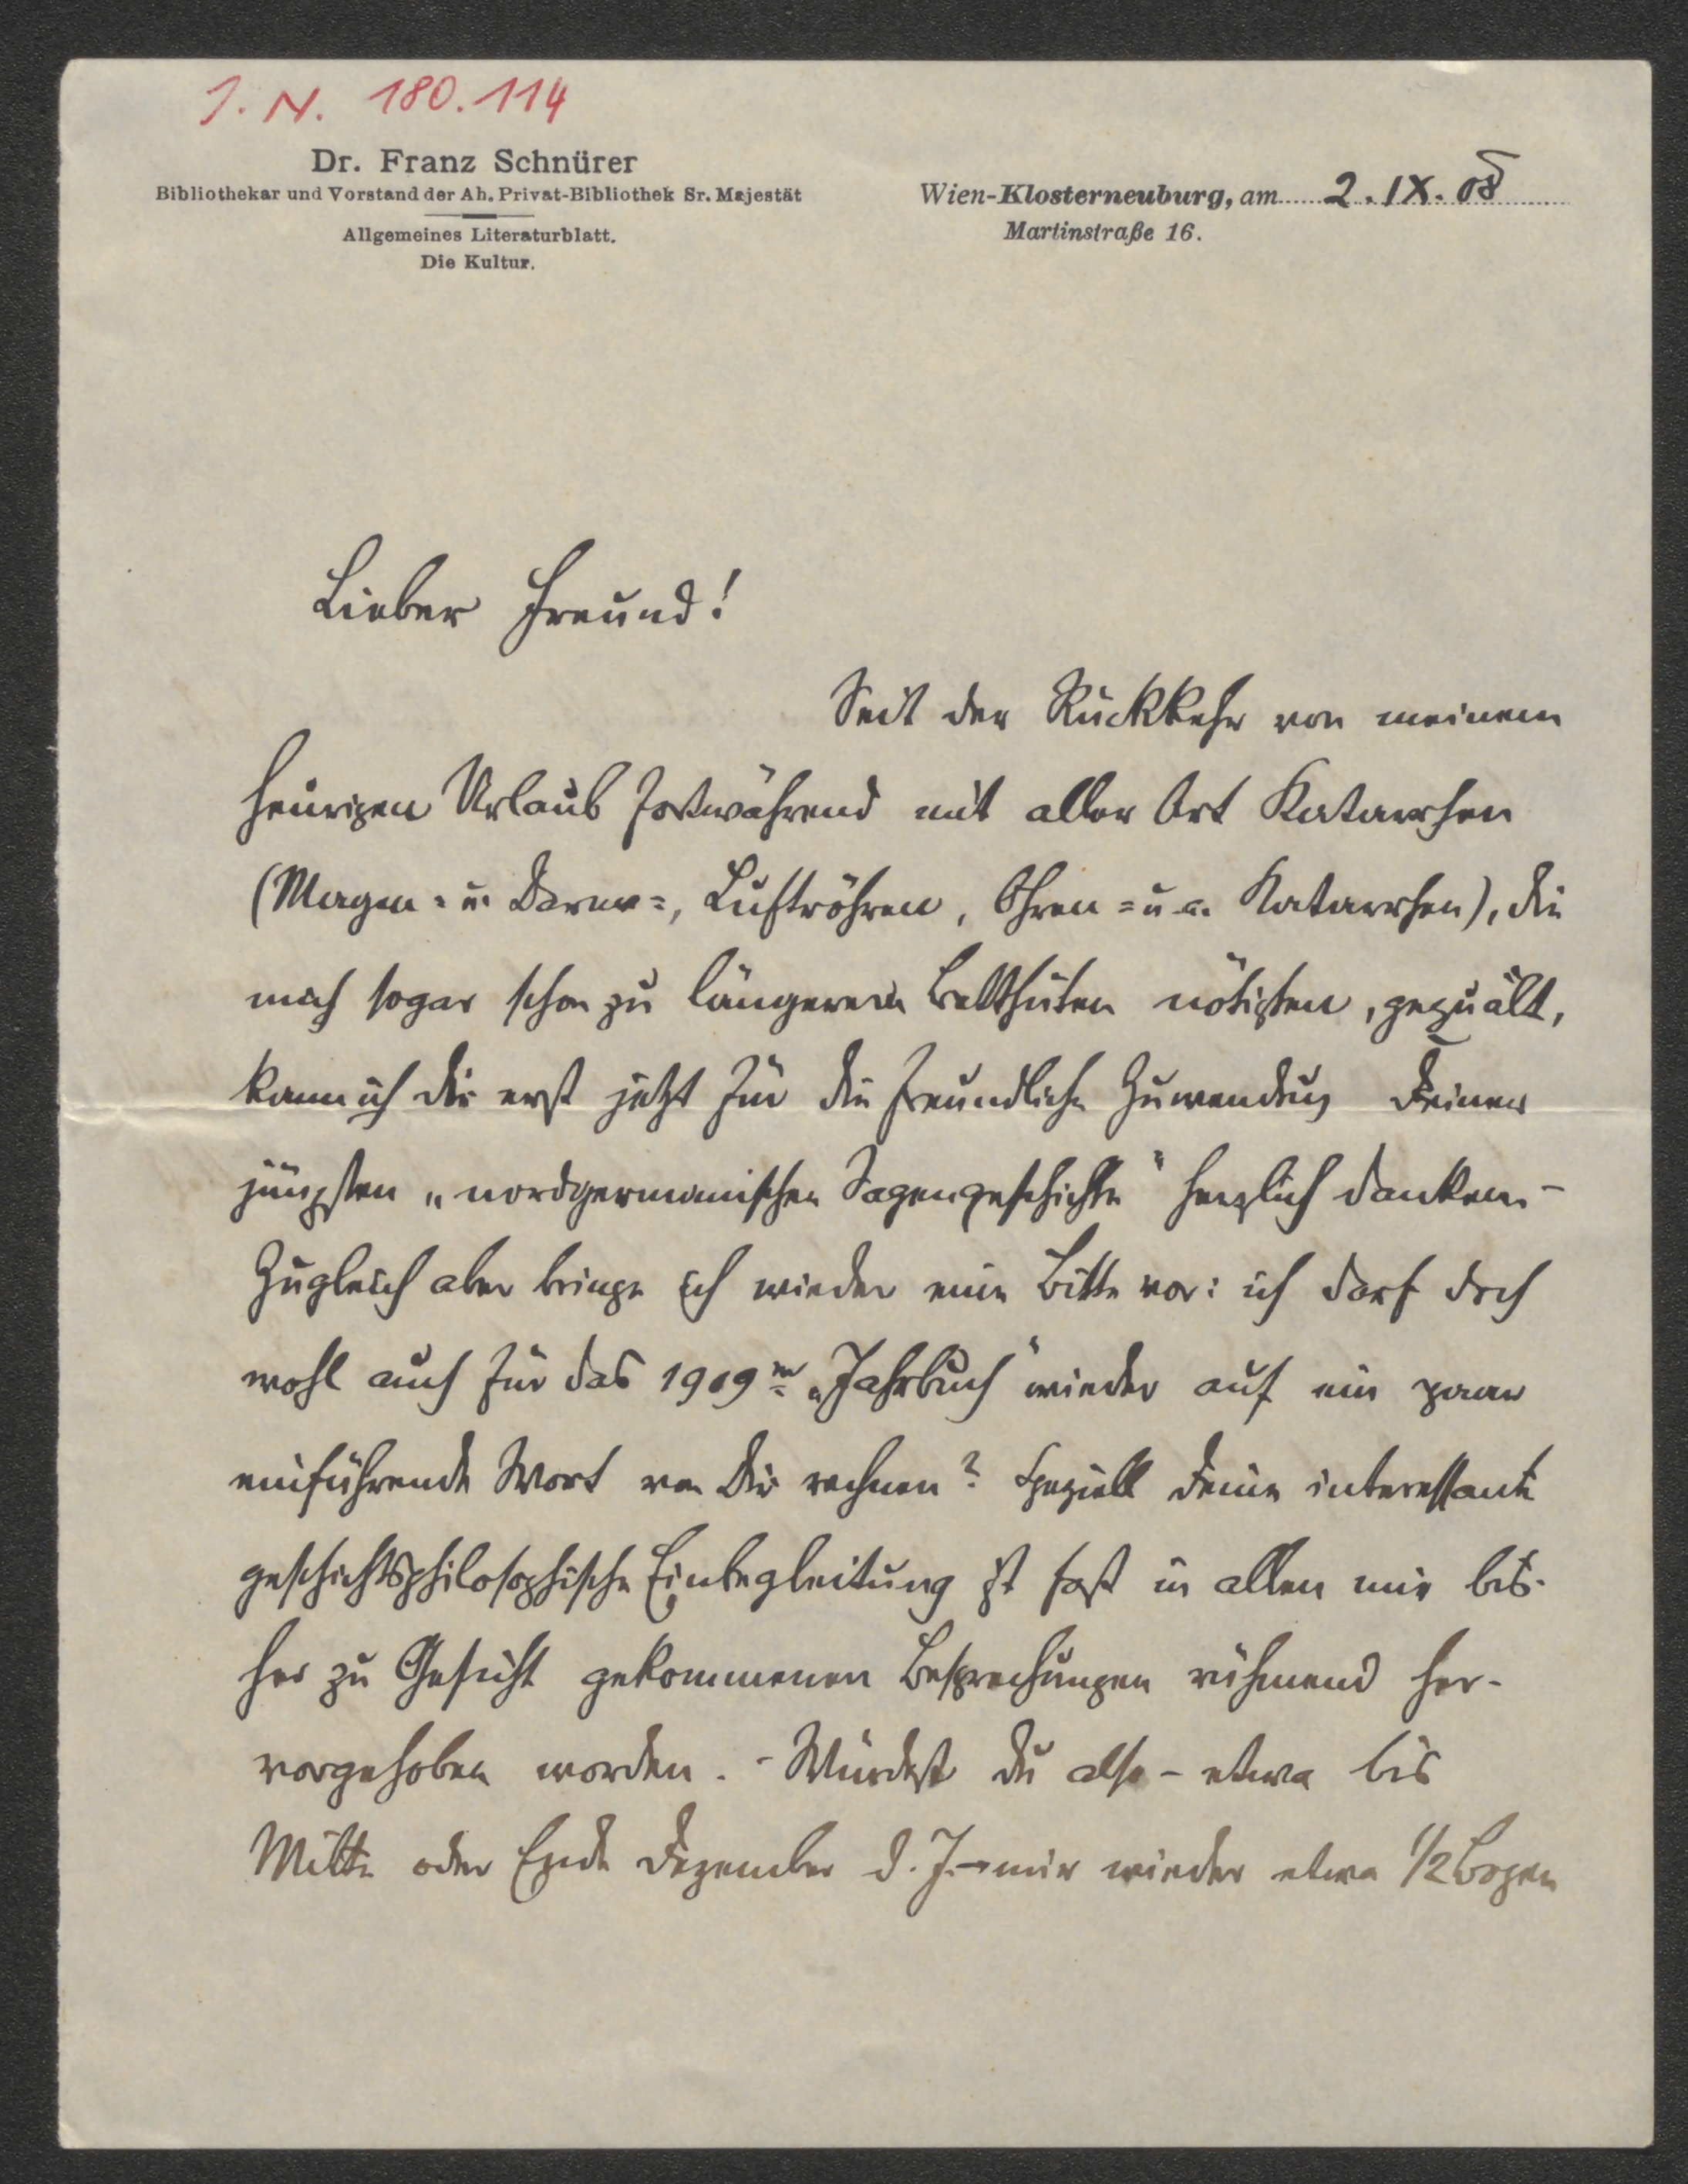 J. N. 180.114
Dr. Franz Schnürer
Bibliothekar und Vorstand der Ah. Privat-Bibliothek Sr. Majestät
Allgemeines Literaturblatt.
Die Kultur.
Wien-Klosterneuburg, am 2. IX. 08
Martinstraße 16.
Lieber Freund!
Seit der Rückkehr von meinem
heurigen Urlaub fortwährend mit aller Art Katarrhen
(Magen- u. Darm-, Luftröhren, Ohren- u. a. Katarrhen), die
mich sogar schon zu längerem Betthüten nötigten, gequält,
kann ich Dir erst jetzt für die freundliche Zuwendung Deiner
jüngsten „nordgermanischen Sagengeschichte" herzlich danken. –
Zugleich aber bringe ich wieder eine Bitte vor: ich darf doch
wohl auch für das 1909er „Jahrbuch" wieder auf ein paar
einführende Wort von Dir rechnen? Speziell Deine interessante
geschichtsphilosophische Einbegleitung ist fast in allen mir bis-
her zu Gesicht gekommenen Besprechungen rühmend her-
vorgehoben worden. – Würdest Du also – etwa bis
Mitte oder Ende Dezember d. J. – mir wieder etwa 1/2 Bogen